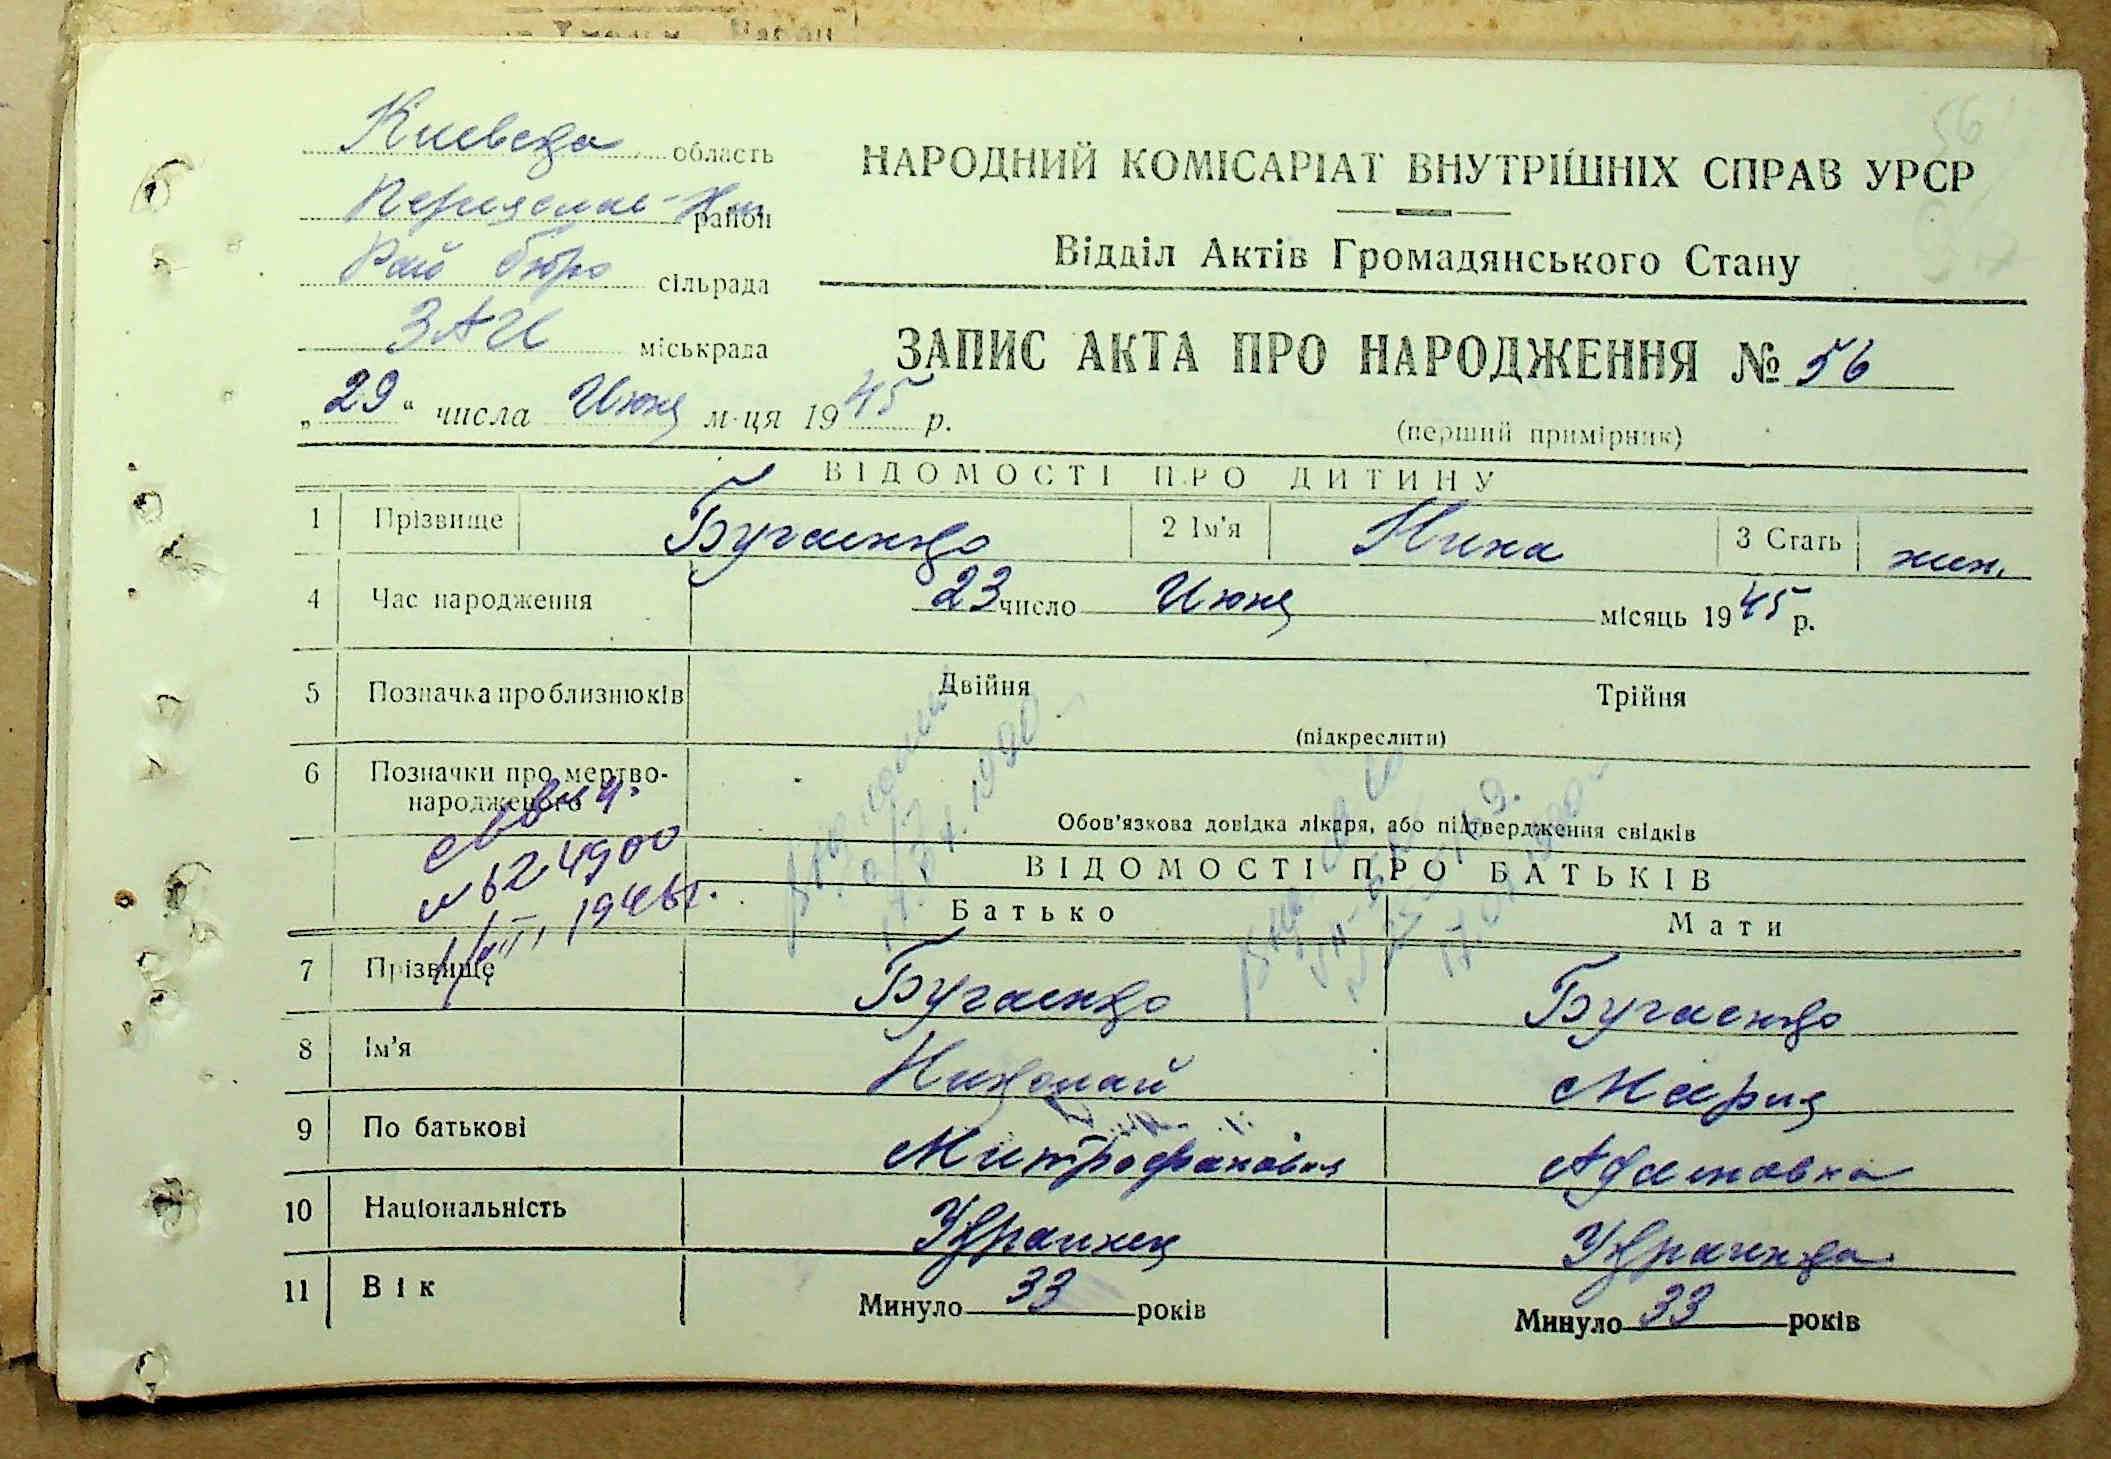 Киевска область
НАРОДНИЙ КОМІСАРІАТ ВНУТРІШНІХ СПРАВ УРСР
Переяслав-Хм район
Відділ Актів Громадянського Стану
Рай бюро сільрада
ЗАГС міськрада
ЗАПИС АКТА ПРО НАРОДЖЕННЯ № 56
„29“ числа Июня м-ця 1945 р.
(перший примірник)
ВІДОМОСТІ ПРО ДИТИНУ
1 Прізвище Бугаенко 2 Ім'я Нина 3 Стать жен.
4 Час народження 23 число Июня місяць 1945 р.
5 Позначка про близнюків Двійня Трійня
(підкреслити)
6 Позначки про мертво-
народженого
Обов'язкова довідка лікаря, або підтвердження свідків
№ 624900
1946 г.
ВІДОМОСТІ ПРО БАТЬКІВ
Батько Мати
7 Прізвище Бугаенко Бугаенко
8 Ім'я Николай Мария
9 По батькові Митрофанович Адамовна
10 Національність Украинец Украинка
11 Вік Минуло 33 років Минуло 33 років